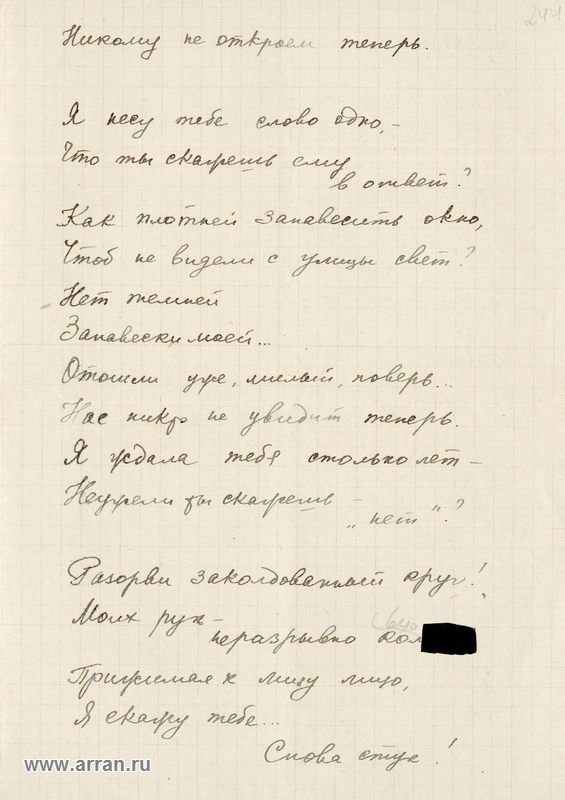 244
Никому не откроем теперь.
Я несу тебе слово одно,–
Что ты скажешь ему
в ответ?
Как плотней занавесить окно,
Чтоб не видели с улицы свет?
Нет темней
Занавески моей...
Отошли уже, милый, поверь...
Нас никто не увидит теперь.
Я ждала тебя столько лет –
Неужели ты скажешь –
„нет"?
Разорви заколдованный круг!
Моих рук –
неразрывно кол
Прижимая к лицу лицо,
Я скажу тебе...
Снова стук!
www.arran.ru